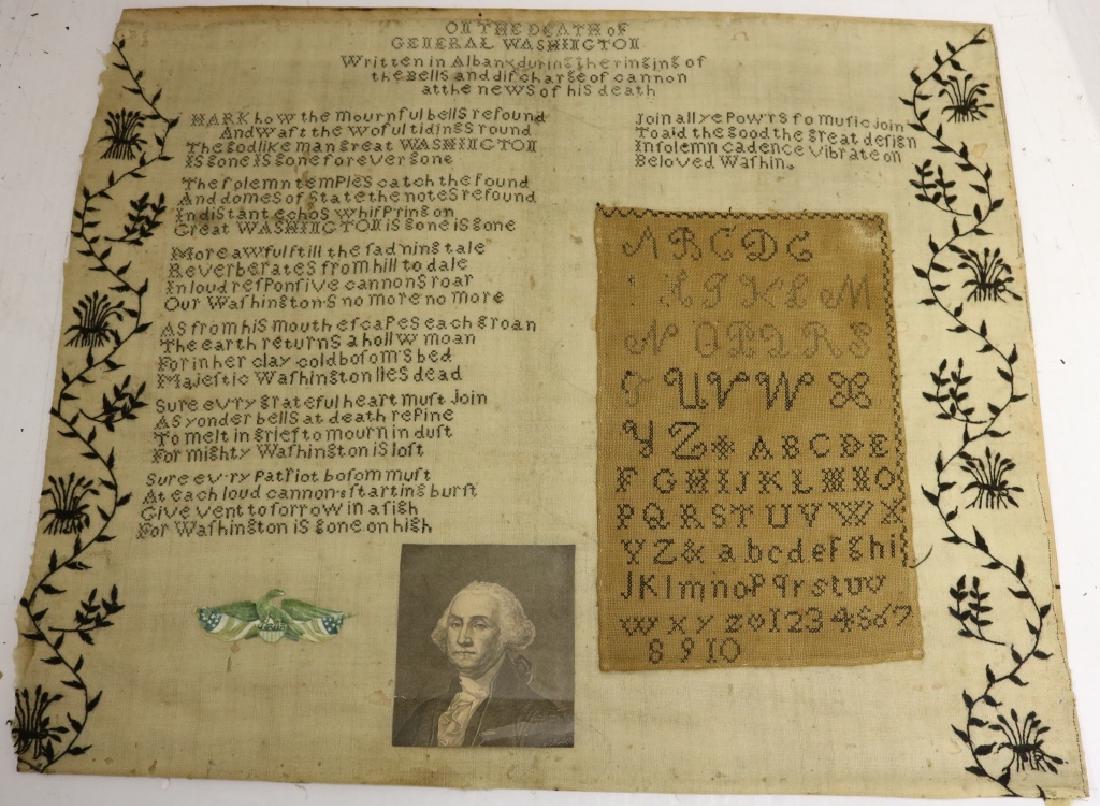 ON THE DEATH OF
GENERAL WASHINGTON
Written in Albany during the ringing of
the Bells and difcharge of cannon
at the news of his death
HARK how the mournful bells refound
And waft the woful tidings round
The godlike man great WASHINGTON
IS gone IS gone forever gone
The folemn temples catch the found
And domes of State the notes refound
In diftant echos whifpring on
Great WASHINGTON is gone is gone
More awful ftill the fadning tale
Reverberates from hill to dale
In loud refponfive cannons roar
Our Wafhingtons no more no more
As from his mouth efcapes each groan
The earth returns a hollw moan
For in her clay cold bofom's bed
Majeftic Wafhington lies dead
Sure evry grateful heart muft join
As yonder bells at death repine
To melt in grief to mourn in duft
For mighty Wafhington is loft
Sure evry Patriot bofom muft
At each loud cannons ftarting burft
Give vent to forrow in a figh
For Wafhington is gone on high
Join all ye Powrs fo mufic join
To aid the good the great defign
In folemn cadence vibrate on
Beloved Wafhin
A B C D E
H I K L M
N O P Q R S
T U V W X
Y Z A B C D E
F G H I J K L M N O
P Q R S T U V W X
Y Z & a b c d e f g h i
J K l m n o p q r s t u v
w x y z & 1 2 3 4 5 6 7
8 9 10